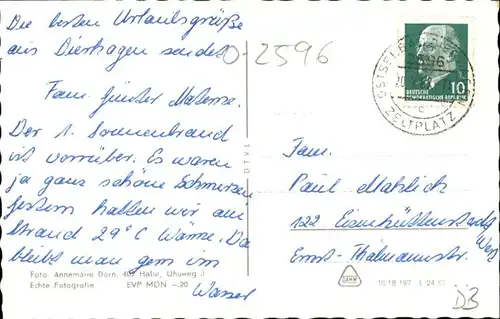 Die besten Urlaubsgrüße
aus Dierhagen sendet
Fam. Günter Materne.
Der 1. Sonnenbrand
ist vorrüber. Es waren
ja ganz schöne Schmerzen
gestern hatten wir am
Strand 29°C Wärme. Da
bleibt man gern im
Wasser
Foto: Annemarie Dorn, 402 Halle, Uhuweg 3
Echte Fotografie EVP MDN -.20
DTVL
0-2596
10
DEUTSCHE
DEMOKRATISCHE REPUBLIK
OSTSEEBAD
ZELTPLATZ
Fam.
Paul
122 Eisenhüttenstadt
Ernst-Thälmannstr.
DB